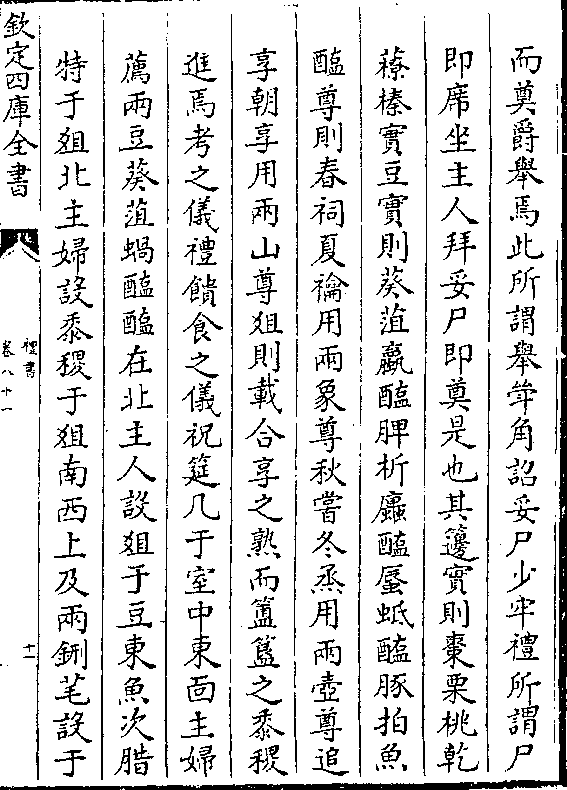 而奠爵舉焉此所謂舉斚角詔妥尸少牢禮所謂尸
即席坐主人拜妥尸即奠是也其籩實則棗栗桃乾
䕩榛實豆實則葵菹蠃醢脾析蠯醢蜃蚳醢豚拍魚
醢尊則春祠夏禴用兩象尊秋嘗冬烝用兩壺尊追
享朝享用兩山尊俎則載合享之熟而簠簋之黍稷
進焉考之儀禮饋食之儀祝筵几于室中東面主婦
薦兩豆葵菹蝸醢醢在北主人設俎于豆東魚次腊
特于俎北主婦設黍稷于俎南西上及兩鉶芼設于
欽定四庫全書
禮書
卷八十一
十一